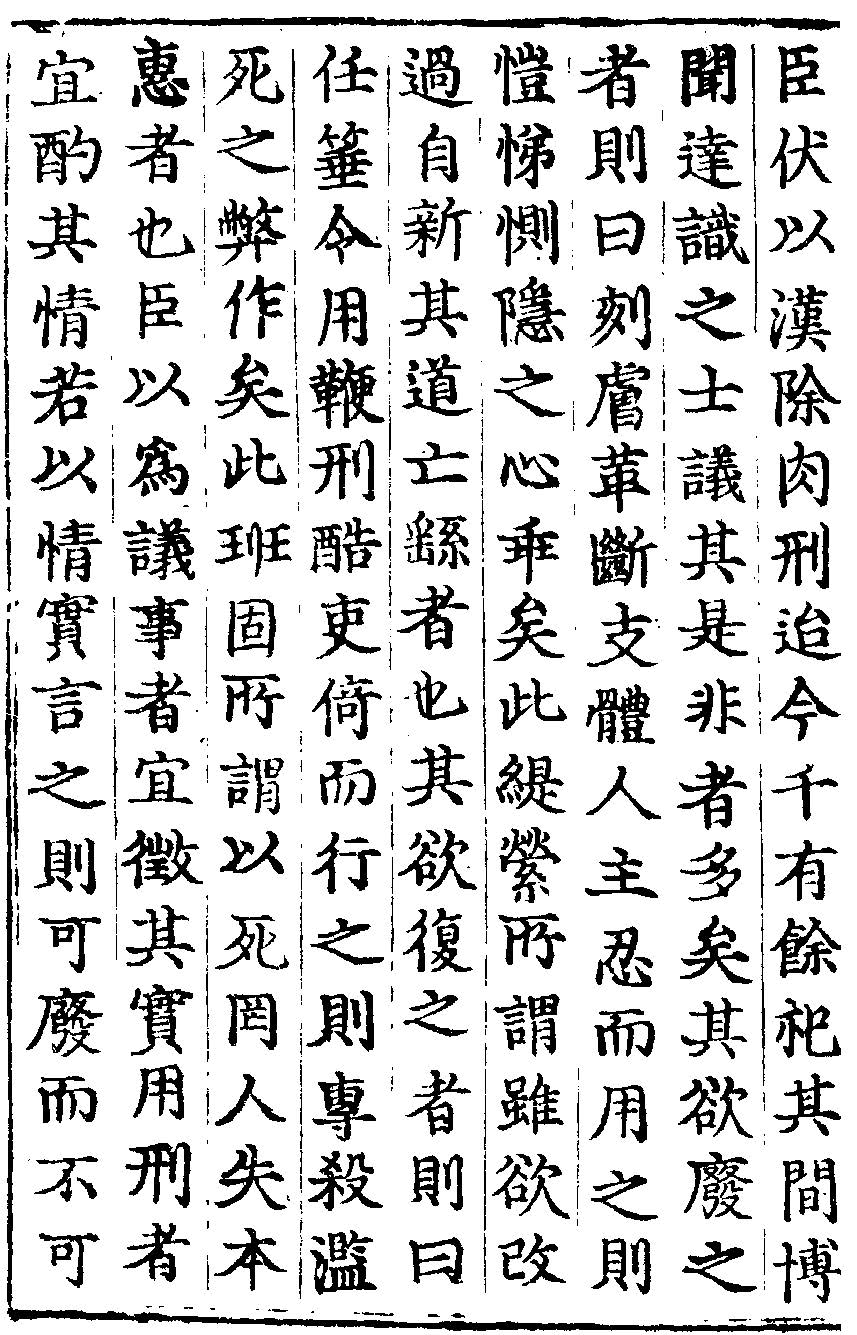 臣伏以漢除肉刑迨今千有餘祀其間博
聞達識之士議其是非者多矣其欲廢之
者則曰刻膚革斷支體人主忍而用之則
愷悌惻隱之心乖矣此緹縈所謂雖欲改
過自新其道亡繇者也其欲復之者則曰
任箠令用鞭刑酷吏倚而行之則專殺濫
死之弊作矣此班固所謂以死罔人失本
惠者也臣以爲議事者宜徵其實用刑者
宜酌其情若以情實言之則可廢而不可